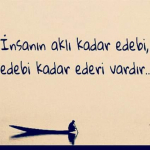 İnsanın aklı kadar edebi,
edebi kadar ederi vardır...